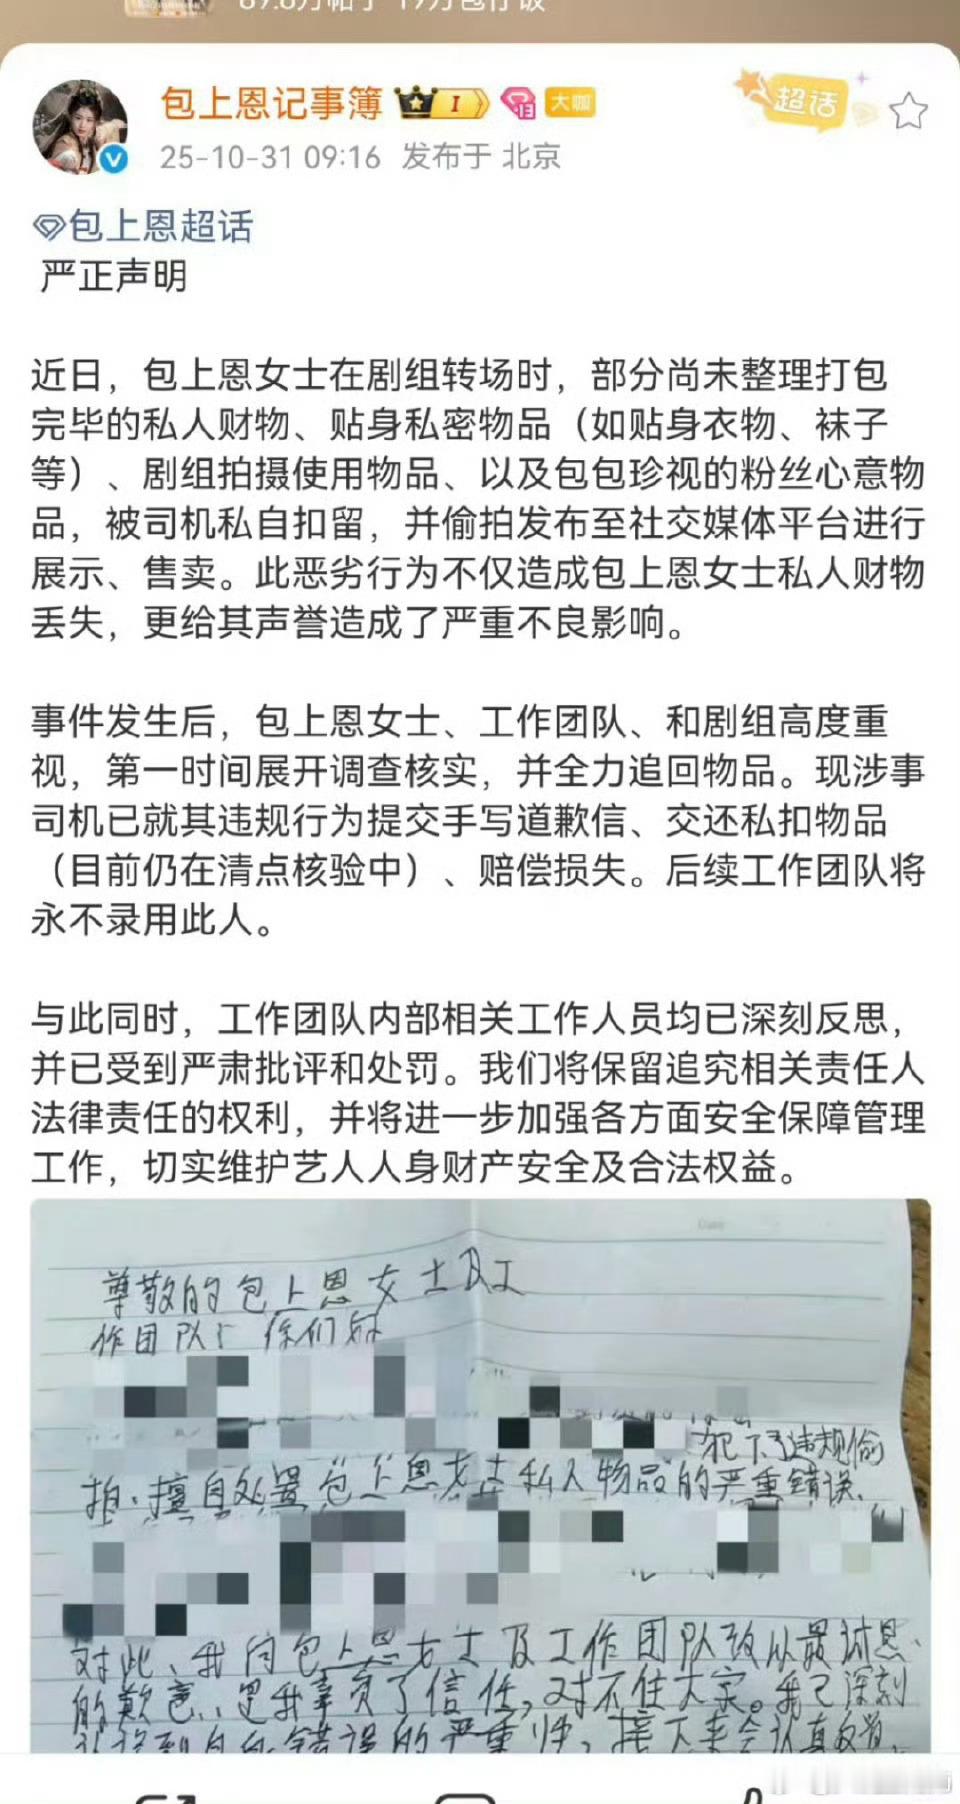 包上恩记事簿 I 13 大咖
超话
25-10-31 09:16 发布于 北京
包上恩超话
严正声明
近日，包上恩女士在剧组转场时，部分尚未整理打包
完毕的私人财物、贴身私密物品（如贴身衣物、袜子
等）、剧组拍摄使用物品、以及包包珍视的粉丝心意物
品，被司机私自扣留，并偷拍发布至社交媒体平台进行
展示、售卖。此恶劣行为不仅造成包上恩女士私人财物
丢失，更给其声誉造成了严重不良影响。
事件发生后，包上恩女士、工作团队、和剧组高度重
视，第一时间展开调查核实，并全力追回物品。现涉事
司机已就其违规行为提交手写道歉信、交还私扣物品
（目前仍在清点核验中）、赔偿损失。后续工作团队将
永不录用此人。
与此同时，工作团队内部相关工作人员均已深刻反思，
并已受到严肃批评和处罚。我们将保留追究相关责任人
法律责任的权利，并将进一步加强各方面安全保障管理
工作，切实维护艺人人身财产安全及合法权益。
尊敬的包上恩女士及工
作团队：你们好
犯下了违规偷
拍、擅自处置包上恩女士私人物品的严重错误、
对此、我向包上恩女士及工作团队致以最诚恳
的歉意，是我辜负了信任，对不住大家。我已深刻